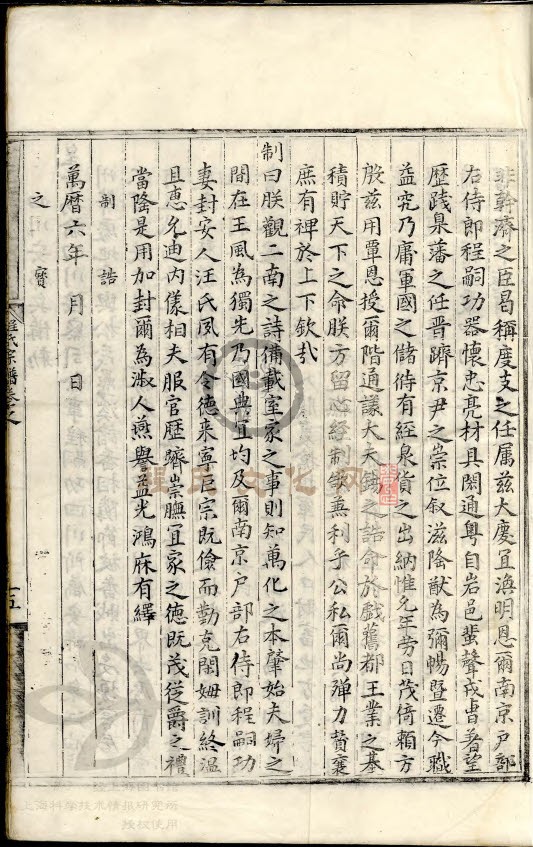 非幹濟之臣曷稱度支之任属兹大慶宜渙明恩爾南京户部
右侍郎程嗣功器懷忠亮材具閎通粤自岩邑蜚聲戎曹著望
歷踐臬藩之任晋躋京尹之崇位叙滋隆猷為彌暢暨遷今職
益究乃庸軍國之儲偫有經泉貨之出納惟允年劳日茂倚賴方
殷兹用覃恩授爾階通議大夫錫之誥命於戲舊都王業之基
積貯天下之命朕方留心經制欲兼利乎公私爾尚殫力賛襄
庶有裨於上下欽哉
制曰朕觀二南之詩備載室家之事則知萬化之本肇始夫婦之
間在王風為獨先乃國典宜均及爾南京户部右侍郎程嗣功
妻封安人汪氏夙有令德来寧巨宗既儉而勤克閑姆訓終温
且惠允迪内儀相夫服官歷躋崇膴宜家之德既茂從爵之禮
當隆是用加封爾為淑人燕譽益光鴻庥有繹
制誥
萬曆六年 月 日
之寳
程氏宗譜卷之
十五
程氏文化网
上海图书馆
上海科学技术情报研究所
授权使用